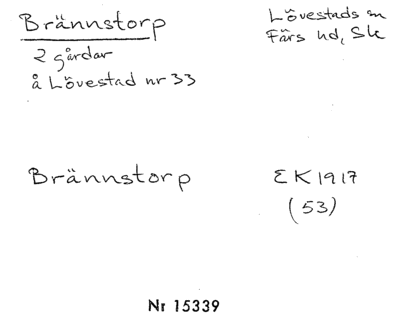 Brännstorp
2 gårdar
å Lövestad nr 33
Lövestads sn
Färs hd, Sk
Brännstorp
EK 1917
(53)
Nr 15339